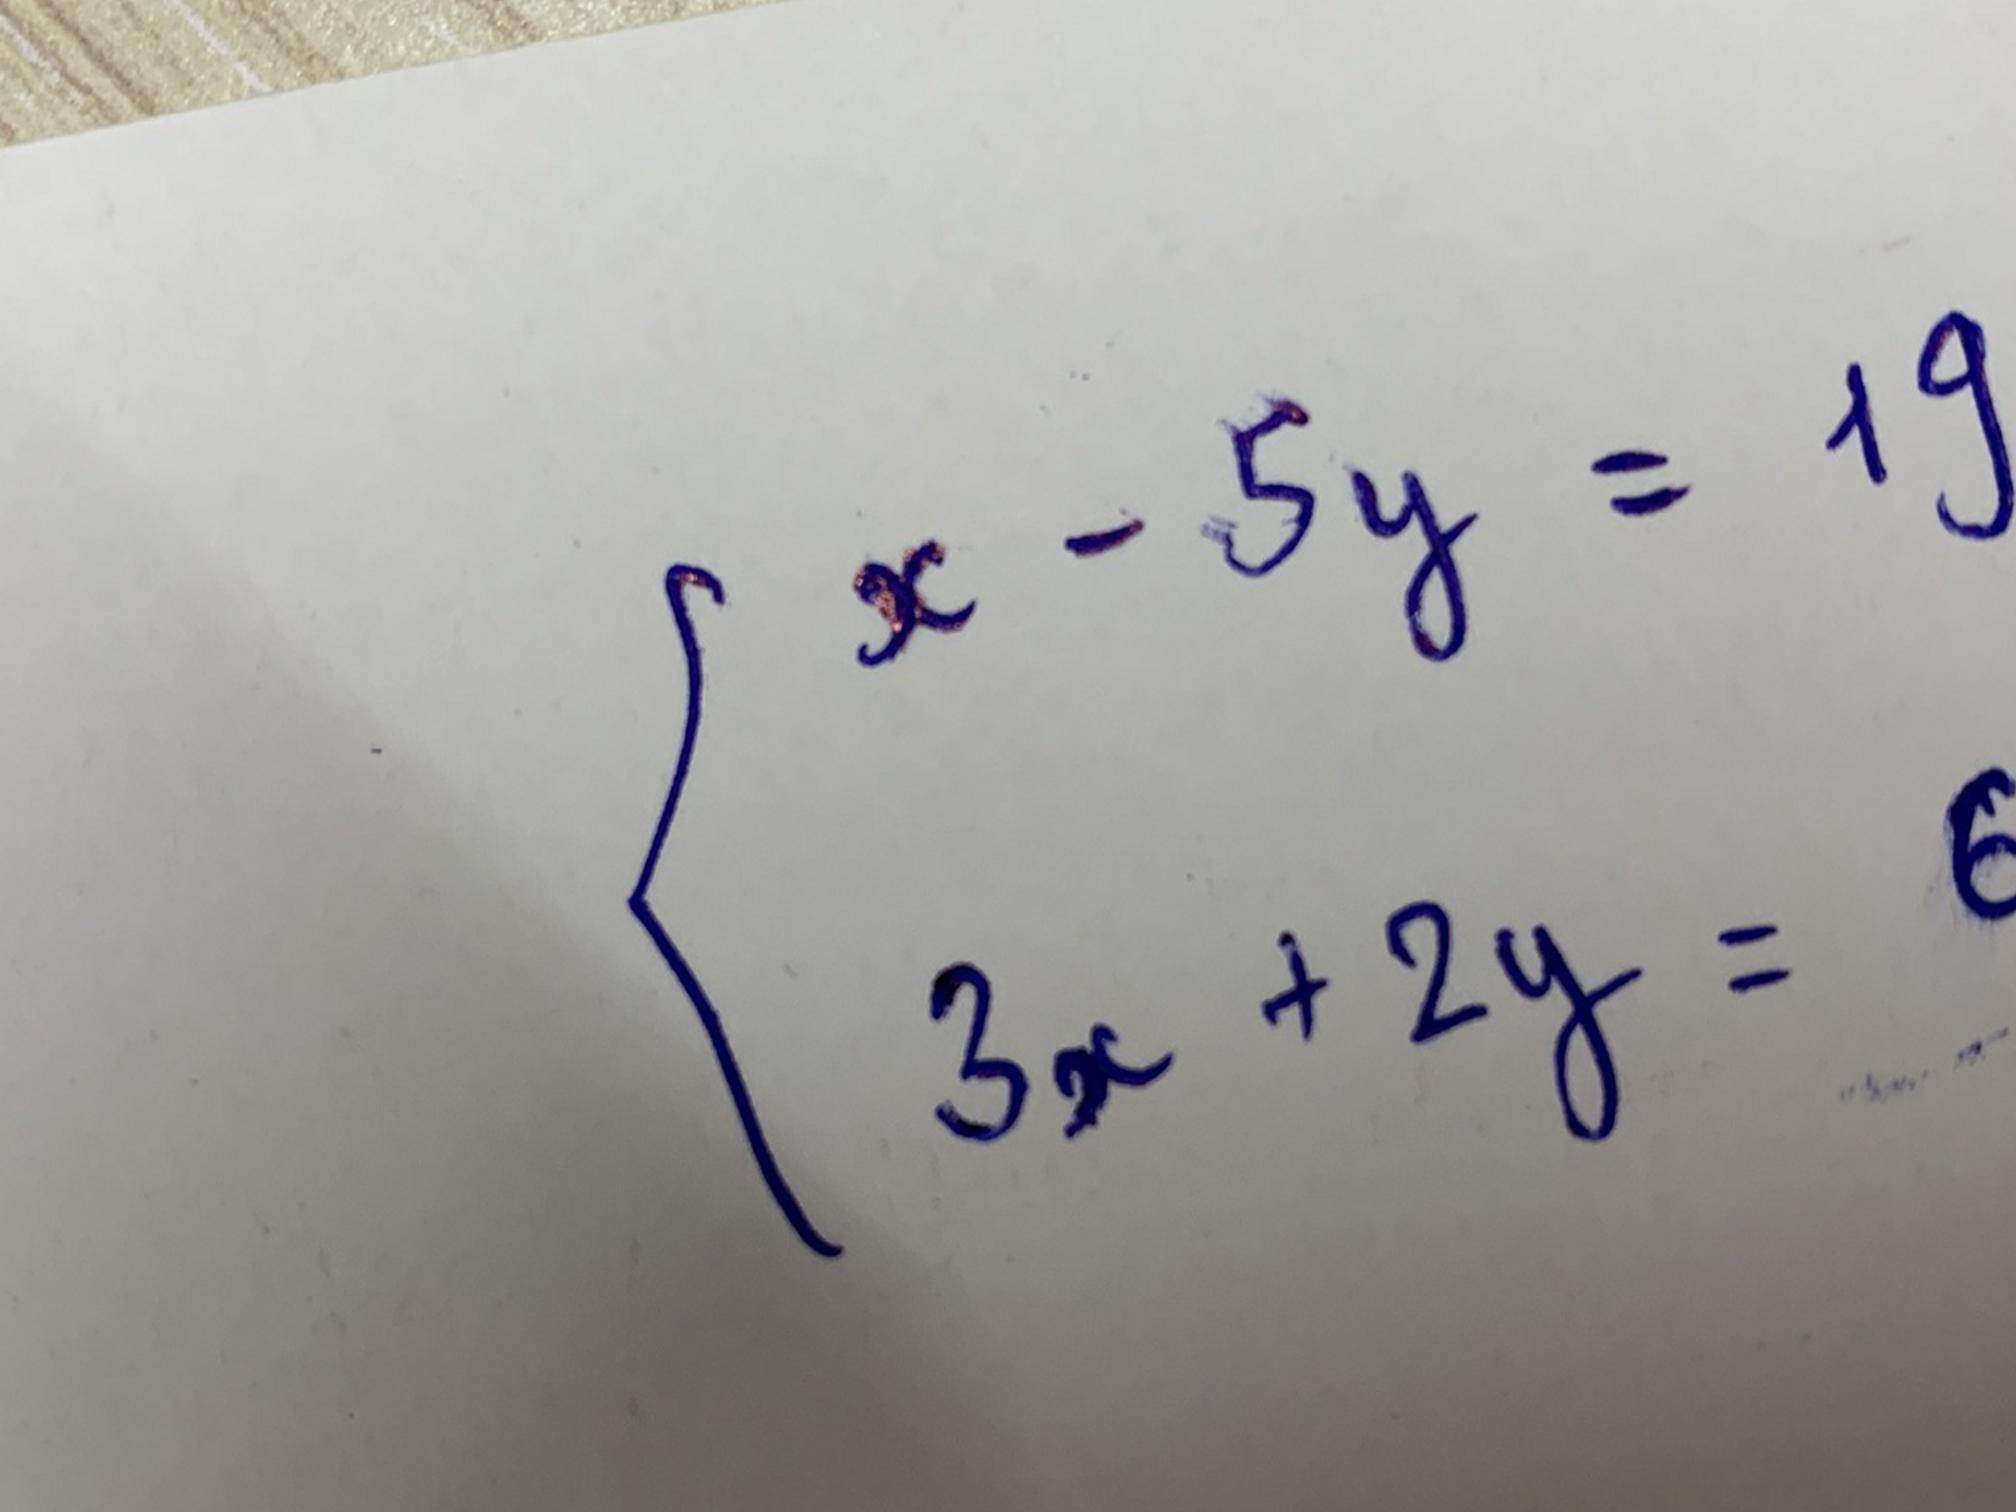 x - 5y = 19
3x + 2y = 6